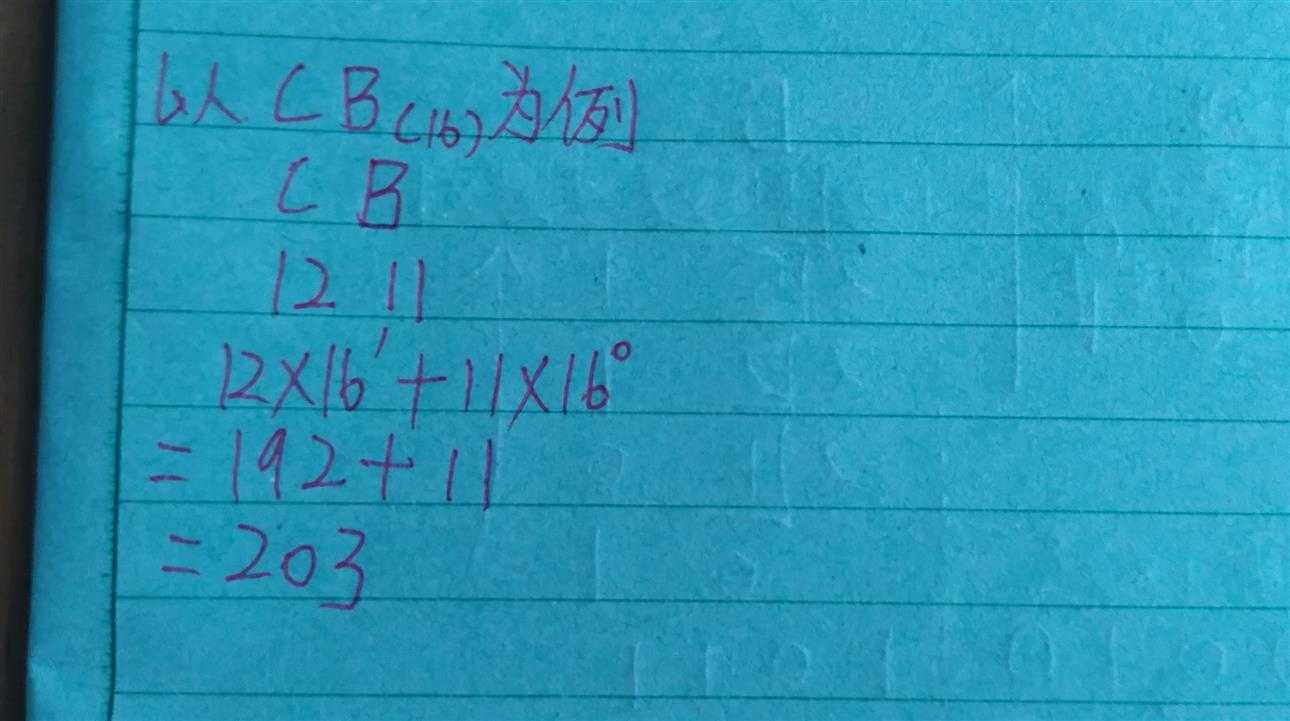 以CB(16)为例
C B
12 11
12×16¹+11×16⁰
=192+11
=203